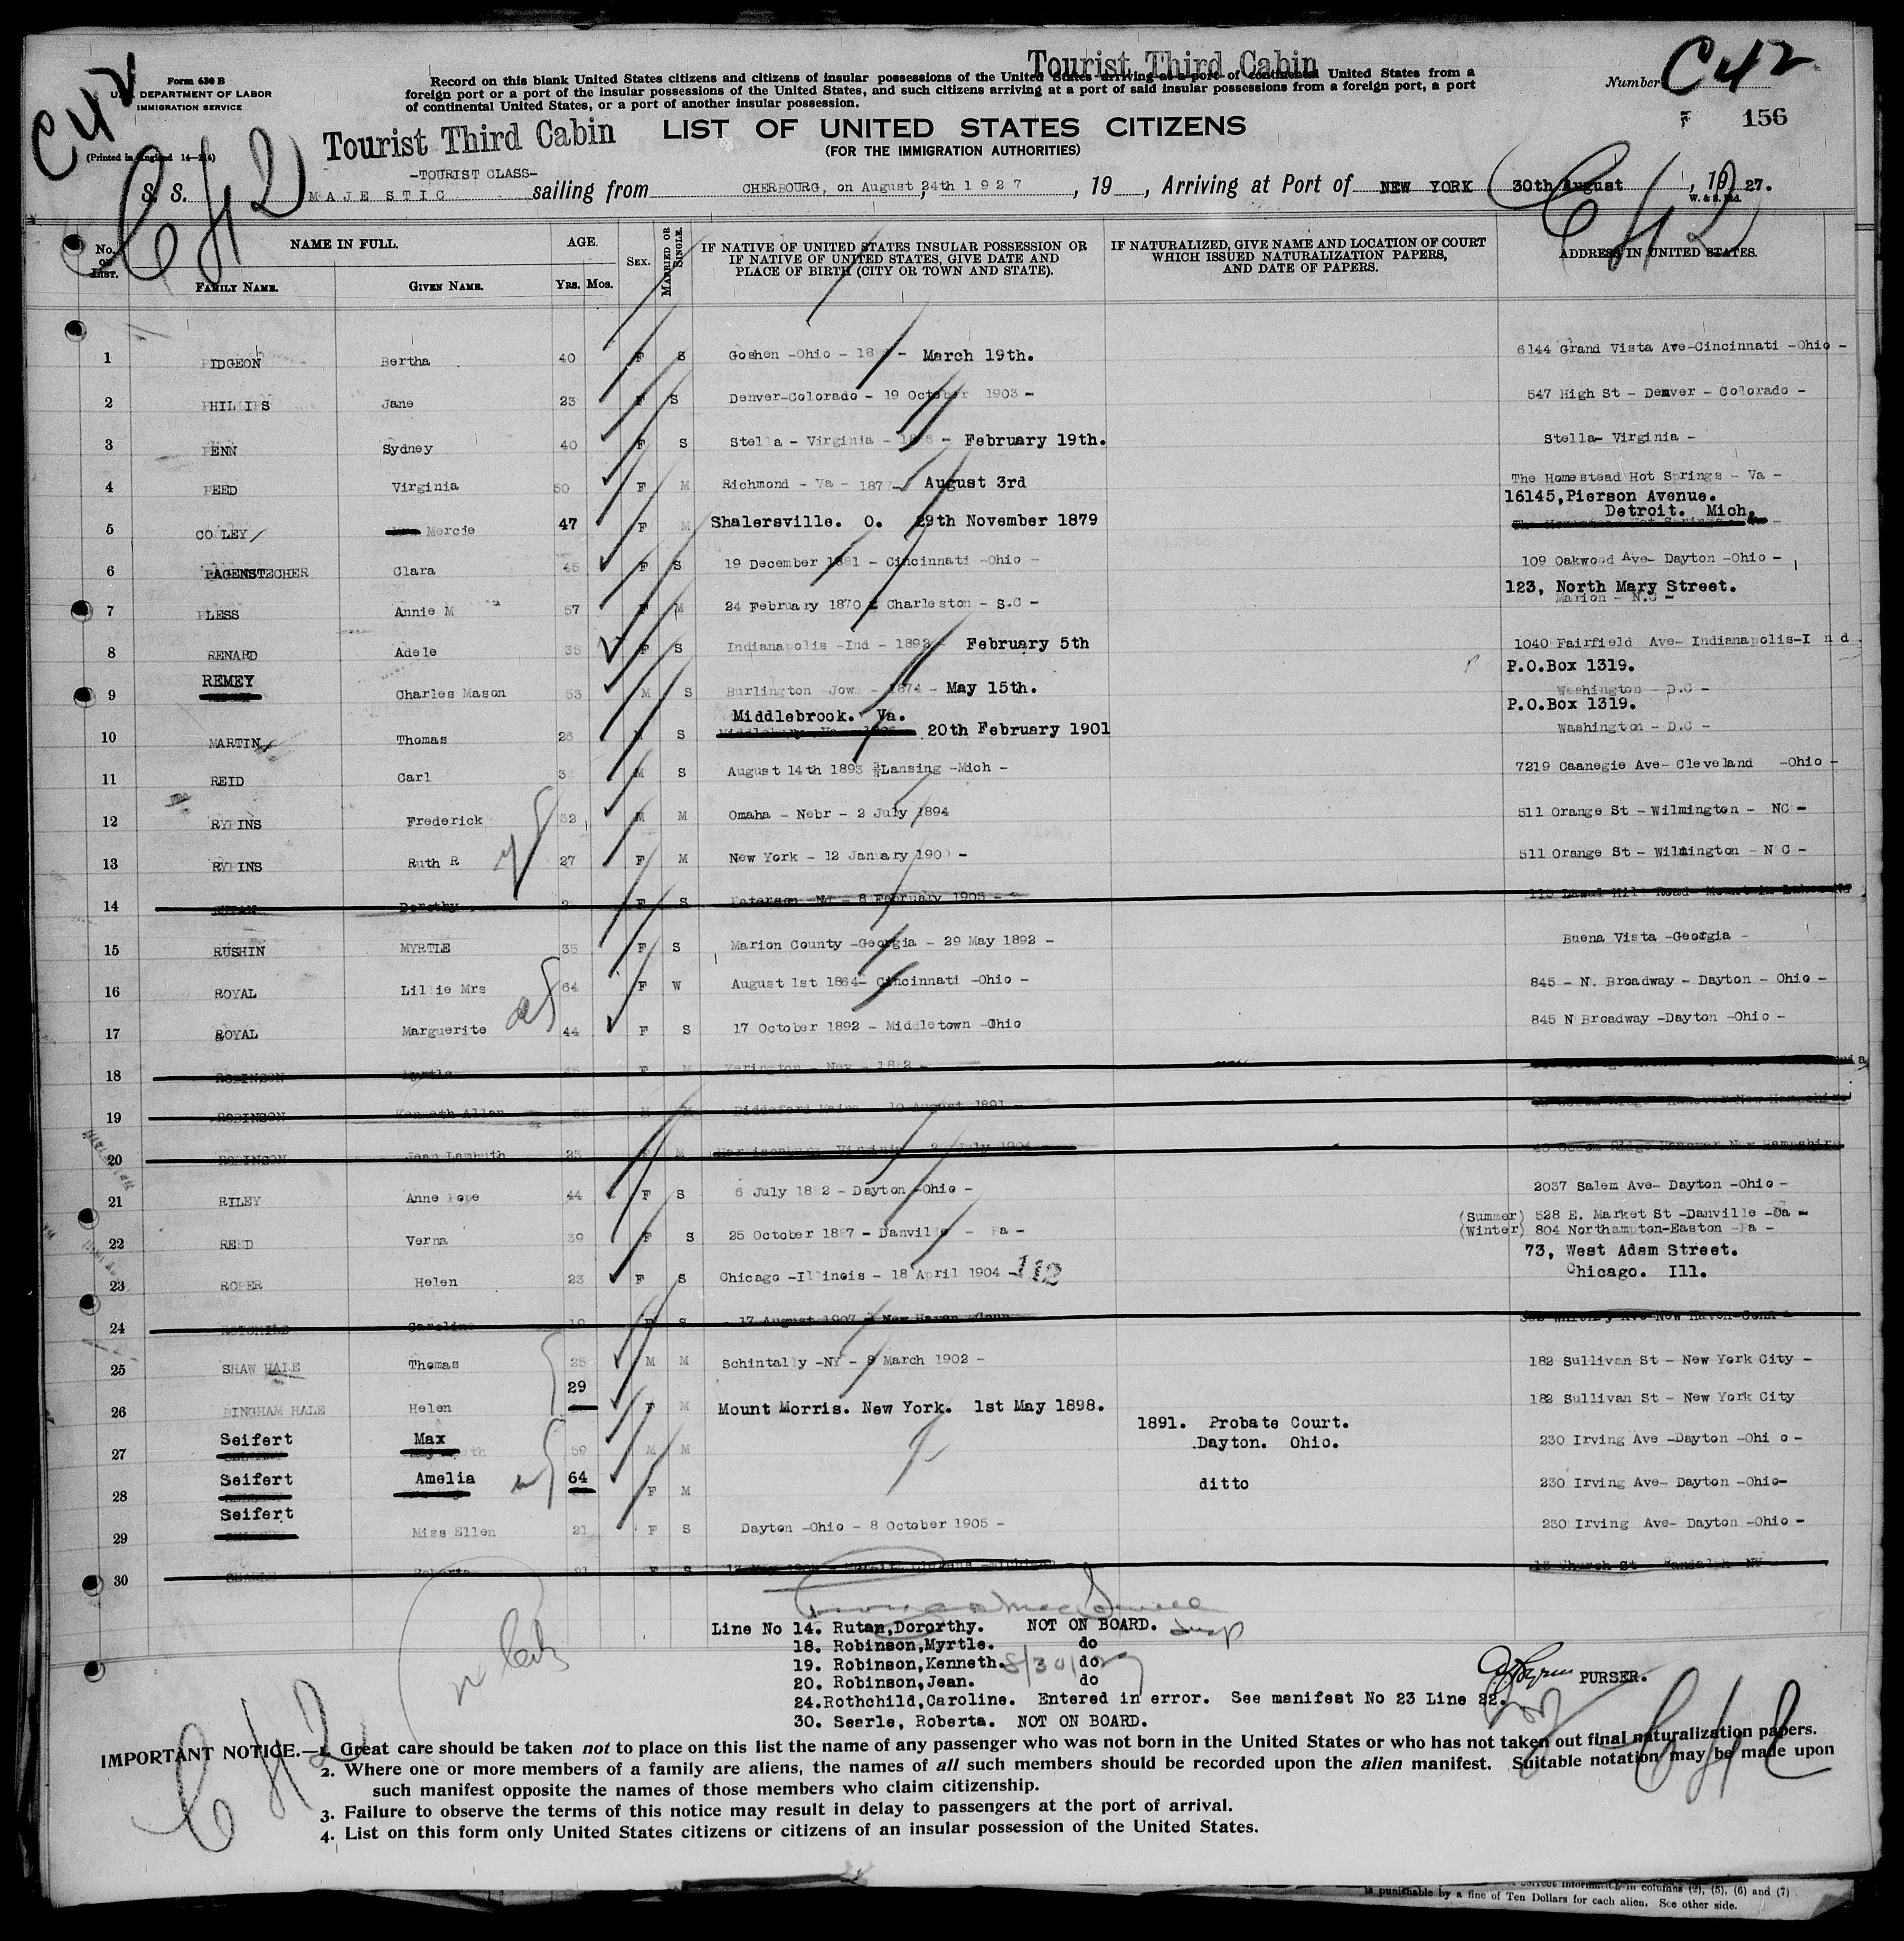 Tourist Third Cabin
Form 630 B
U.S. DEPARTMENT OF LABOR
IMMIGRATION SERVICE
(Printed in England 14—214)
Record on this blank United States citizens and citizens of insular possessions of the United States arriving at a port of continental United States from a
foreign port or a port of the insular possessions of the United States, and such citizens arriving at a port of said insular possessions from a foreign port, a port
of continental United States, or a port of another insular possession.
Number C42
156
C42
C42
Tourist Third Cabin
LIST OF UNITED STATES CITIZENS
(FOR THE IMMIGRATION AUTHORITIES)
-TOURIST CLASS-
S. S. MAJESTIC sailing from CHERBOURG, on August 24th 1927, 19 , Arriving at Port of NEW YORK 30th August, 1927.
W. & S. Ltd.
C42
No. on List.
NAME IN FULL.
Family Name. Given Name.
AGE.
Yrs. Mos.
Sex.
Married or Single.
IF NATIVE OF UNITED STATES INSULAR POSSESSION OR
IF NATIVE OF UNITED STATES, GIVE DATE AND
PLACE OF BIRTH (CITY OR TOWN AND STATE).
IF NATURALIZED, GIVE NAME AND LOCATION OF COURT
WHICH ISSUED NATURALIZATION PAPERS,
AND DATE OF PAPERS.
ADDRESS IN UNITED STATES.
1 PIDGEON Bertha 40 F S Goshen -Ohio - - March 19th. 6144 Grand Vista Ave-Cincinnati -Ohio -
2 PHILLIPS Jane 23 F S Denver-Colorado - 19 October 1903 - 547 High St - Denver - Colorado -
3 PENN Sydney 40 F S Stella - Virginia - - February 19th. Stella- Virginia -
4 REED Virginia 50 F M Richmond - Va - 1877 - August 3rd The Homestead Hot Springs - Va -
16145,Pierson Avenue.
Detroit. Mich.
5 COOLEY Mercie 47 F M Shalersville. O. 29th November 1879
6 PAGENSTECHER Clara 45 F S 19 December 1881 - Cincinnati -Ohio - 109 Oakwood Ave- Dayton -Ohio -
7 PLESS Annie M 57 F M 24 February 1870 - Charleston - S.C - 123, North Mary Street.
Marion - N.C -
8 RENARD Adele 35 F S Indianapolis -Ind - 1892 - February 5th 1040 Fairfield Ave- Indianapolis-Ind.
9 REMEY Charles Mason 53 M S Burlington -Jowa - 1874 - May 15th. P.O.Box 1319.
Washington - D.C -
10 MARTIN Thomas 26 M S Middlebrook. Va. 20th February 1901 P.O.Box 1319.
Washington - D.C -
11 REID Carl M S August 14th 1893 Lansing -Mich - 7219 Caanegie Ave- Cleveland -Ohio -
12 RYPINS Frederick 32 M M Omaha - Nebr - 2 July 1894 511 Orange St - Wilmington - NC -
13 RYPINS Ruth R 27 F M New York - 12 January 1900 - 511 Orange St - Wilmington - N C -
14 RUTAN Dorothy F S Paterson -NJ - 8 February 1905 -
15 RUSHIN MYRTLE 35 F S Marion County -Georgia - 29 May 1892 - Buena Vista -Georgia -
16 ROYAL Lillie Mrs 64 F W August 1st 1864- Cincinnati -Ohio - 845 - N. Broadway - Dayton - Ohio -
17 ROYAL Marguerite 44 F S 17 October 1892 - Middletown -Ohio 845 N Broadway -Dayton -Ohio -
18 ROBINSON Myrtle 45 F M Yerington - Nev - 1882 -
19 ROBINSON Kenneth Allan M M Biddeford Maine - 10 August 1891 -
20 ROBINSON Jean Lambuth 23 F M Harrisonburg Virginia July 1904 Hanover New Hampshire
21 RILEY Anne Pope 44 F S 6 July 1882 - Dayton -Ohio - 2037 Salem Ave- Dayton -Ohio -
22 REED Verna 39 F S 25 October 1887 - Danville - Pa - (Summer) 528 E. Market St -Danville -Pa -
(Winter) 804 Northampton-Easton -Pa -
23 ROPER Helen 23 F S Chicago -Illinois - 18 April 1904 - 112 73, West Adam Street.
Chicago. Ill.
24 ROTCHILD Caroline 19 F S 17 August 1907 - New Haven -Conn Ave-New Haven-Conn -
25 SHAW HALE Thomas 25 M M Schintally -NY - 8 March 1902 - 182 Sullivan St - New York City -
26 BINGHAM HALE Helen 29 F M Mount Morris. New York. 1st May 1898. 182 Sullivan St - New York City
27 Seifert Max 59 M M 1891. Probate Court.
Dayton. Ohio. 230 Irving Ave -Dayton -Ohio -
28 Seifert Amelia 64 F M ditto 230 Irving Ave- Dayton -Ohio-
29 Seifert Miss Ellen 21 F S Dayton -Ohio - 8 October 1905 - 230 Irving Ave- Dayton -Ohio -
30 SEARLE Roberta 21 F S 18 Church St - Randolph NY
Line No 14. Rutan,Dororthy. NOT ON BOARD.
18. Robinson,Myrtle. do
19. Robinson,Kenneth. do
20. Robinson,Jean. do
24.Rothchild,Caroline. Entered in error. See manifest No 23 Line 22.
30. Searle, Roberta. NOT ON BOARD.
Insp
8/30/27
PURSER.
C42
C42
IMPORTANT NOTICE.—1. Great care should be taken not to place on this list the name of any passenger who was not born in the United States or who has not taken out final naturalization papers.
2. Where one or more members of a family are aliens, the names of all such members should be recorded upon the alien manifest. Suitable notation may be made upon
such manifest opposite the names of those members who claim citizenship.
3. Failure to observe the terms of this notice may result in delay to passengers at the port of arrival.
4. List on this form only United States citizens or citizens of an insular possession of the United States.
correct information in columns (2), (5), (6) and (7)
is punishable by a fine of Ten Dollars for each alien. See other side.